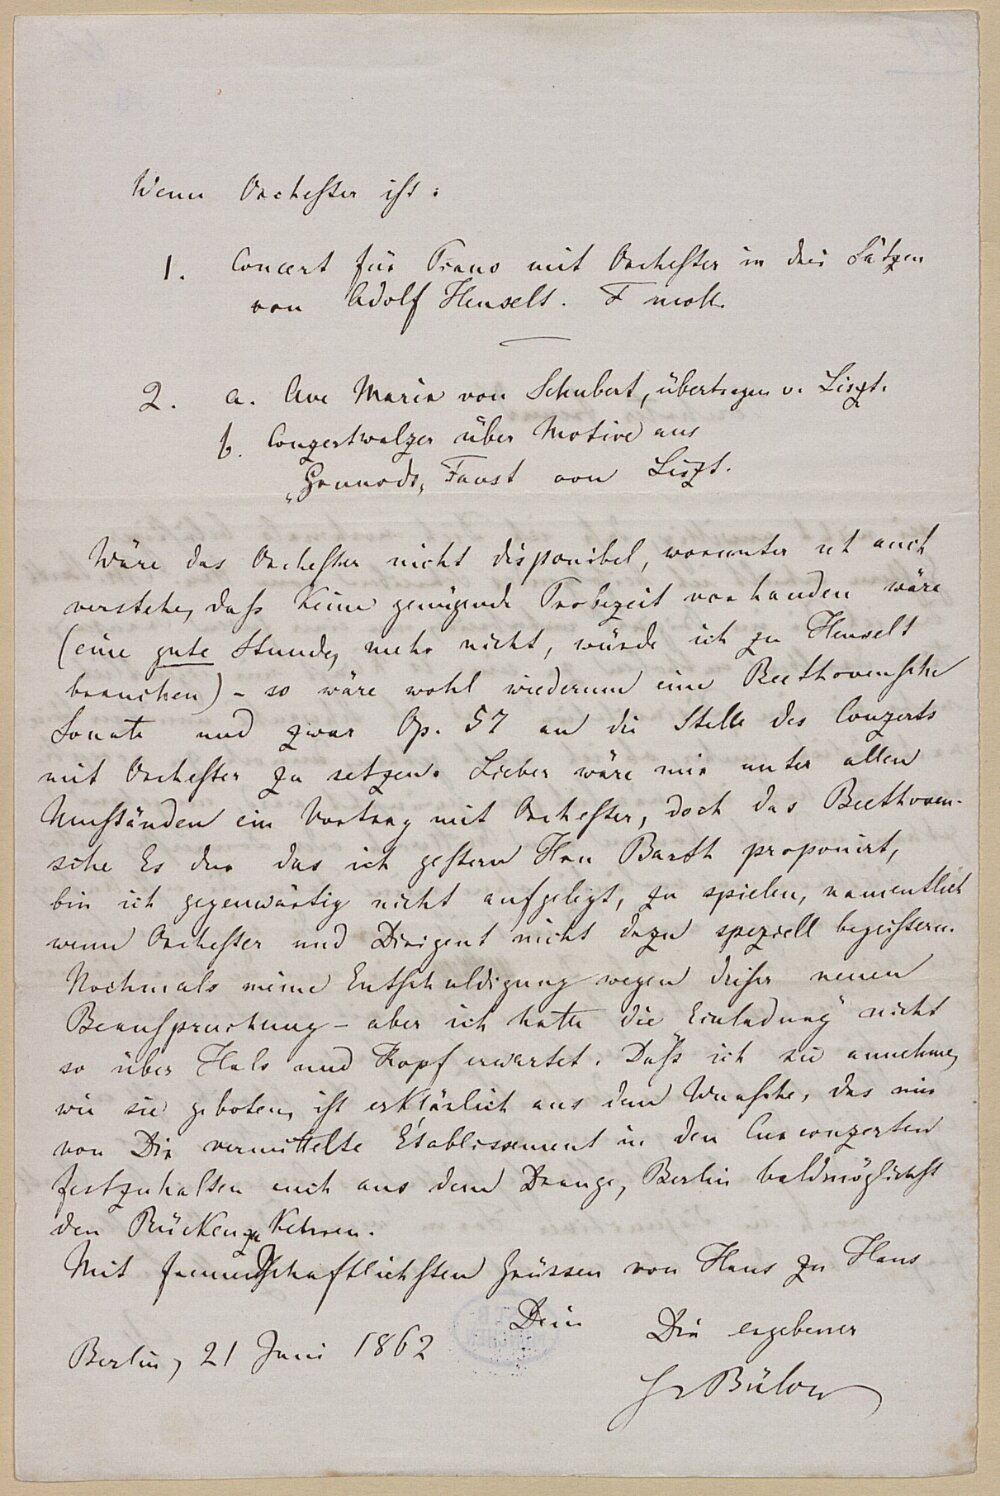 Wenn Orchester ist:
1. Concert für Piano mit Orchester in drei Sätzen
von Adolf Henselt. F moll.
2. a. Ave Maria von Schubert, übertragen v. Liszt.
b. Conzertwalzer über Motive aus
„Gounods„ Faust von Liszt.
Wäre das Orchester nicht disponibel, worunter ich auch
verstehe, daß keine genügende Probezeit vorhanden wäre
(eine gute Stunde, mehr nicht, würde ich zu Henselt
brauchen) – so wäre wohl wiederum eine Beethovensche
Sonate und zwar Op. 57 an die Stelle des Conzerts
mit Orchester zu setzen. Lieber wäre mir unter allen
Umständen ein Vortrag mit Orchester, doch das Beethoven-
sche Es dur das ich gestern Hrn Barth proponirt,
bin ich gegenwärtig nicht aufgelegt, zu spielen, namentlich
wenn Orchester und Dirigent nicht dazu speziell begeistern.
Nochmals meine Entschuldigung wegen dieser neuen
Beanspruchung – aber ich hatte die Einladung nicht
so über Hals und Kopf erwartet. Daß ich sie annehme,
wie sie geboten, ist erklärlich aus dem Wunsche, das mir
von Dir vermittelte Etablissement in den Curconzerten
festzuhalten auch aus dem Drange, Berlin baldmöglichst
den Rücken zu kehren.
Mit freundschaftlichsten Grüssen von Haus zu Haus
Dein Dir ergebener
Berlin, 21 Juni 1862
HvBülow